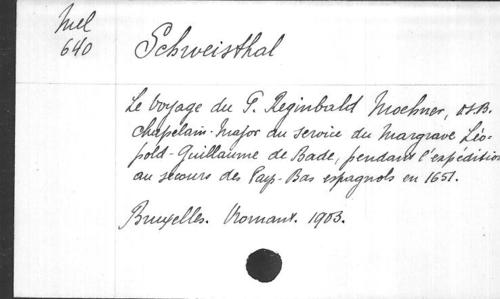 Mel
640
Schweisthal
Le Voyage du P. Reginbald Moehner, O.S.B.
Chapelain-Major au service du Margrave Léo-
pold-Guillaume de Bade, pendant l'expédition
au secours des Pays-Bas espagnols en 1651.
Bruxelles. Vromant. 1903.